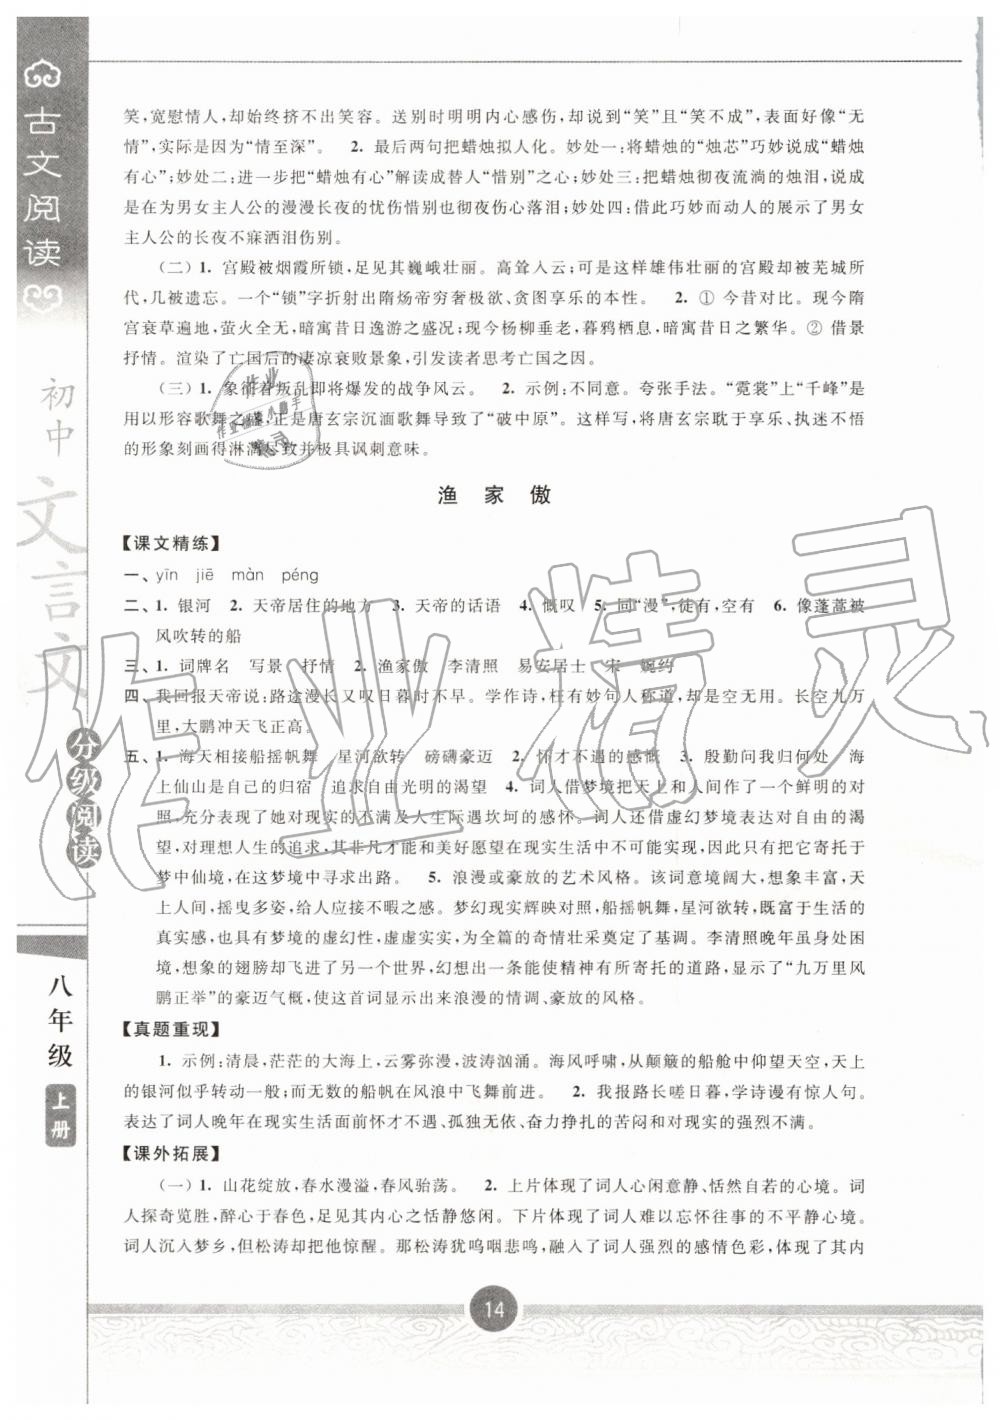 古文阅读
初中
文言文
分级阅读
八年级
上册
笑,宽慰情人,却始终挤不出笑容。送别时明明内心感伤,却说到“笑”且“笑不成”,表面好像“无
情”,实际是因为“情至深”。 2. 最后两句把蜡烛拟人化。妙处一:将蜡烛的“烛芯”巧妙说成“蜡烛
有心”;妙处二:进一步把“蜡烛有心”解读成替人“惜别”之心;妙处三:把蜡烛彻夜流淌的烛泪,说成
是在为男女主人公的漫漫长夜的忧伤惜别也彻夜伤心落泪;妙处四:借此巧妙而动人的展示了男女
主人公的长夜不寐洒泪伤别。
(二) 1. 宫殿被烟霞所锁,足见其巍峨壮丽。高耸入云;可是这样雄伟壮丽的宫殿却被芜城所
代,几被遗忘。一个“锁”字折射出隋炀帝穷奢极欲、贪图享乐的本性。 2. ① 今昔对比。现今隋
宫衰草遍地,萤火全无,暗寓昔日逸游之盛况;现今杨柳垂老,暮鸦栖息,暗寓昔日之繁华。② 借景
抒情。渲染了亡国后的凄凉衰败景象,引发读者思考亡国之因。
(三) 1. 象征着叛乱即将爆发的战争风云。 2. 示例:不同意。夸张手法。“霓裳”上“千峰”是
用以形容歌舞之盛,正是唐玄宗沉湎歌舞导致了“破中原”。这样写,将唐玄宗耽于享乐、执迷不悟
的形象刻画得淋漓尽致并极具讽刺意味。
渔家傲
【课文精练】
一、yīn jiē màn péng
二、1. 银河 2. 天帝居住的地方 3. 天帝的话语 4. 慨叹 5. 同“漫”,徒有,空有 6. 像蓬蒿被
风吹转的船
三、1. 词牌名 写景 抒情 2. 渔家傲 李清照 易安居士 宋 婉约
四、我回报天帝说:路途漫长又叹日暮时不早。学作诗,枉有妙句人称道,却是空无用。长空九万
里,大鹏冲天飞正高。
五、1. 海天相接船摇帆舞 星河欲转 磅礴豪迈 2. 怀才不遇的感慨 3. 殷勤问我归何处 海
上仙山是自己的归宿 追求自由光明的渴望 4. 词人借梦境把天上和人间作了一个鲜明的对
照,充分表现了她对现实的不满及人生际遇坎坷的感怀。词人还借虚幻梦境表达对自由的渴
望,对理想人生的追求,其美非凡才能和美好愿望在现实生活中不可能实现,因此只有把它寄托于
梦中仙境,在这梦境中寻求出路。 5. 浪漫或豪放的艺术风格。该词意境阔大,想象丰富,天
上人间,摇曳多姿,给人应接不暇之感。梦幻现实辉映对照,船摇帆舞,星河欲转,既富于生活的
真实感,也具有梦境的虚幻性,虚虚实实,为全篇的奇情壮采奠定了基调。李清照晚年虽身处困
境,想象的翅膀却飞到另一个世界,幻想出一条能使精神有所寄托的道路,显示了“九万里风
鹏正举”的豪迈气概,使这首词显示出来浪漫的情调、豪放的风格。
【真题重现】
1. 示例:清晨,茫茫的大海上,云雾弥漫,波涛汹涌。海风呼啸,从颠簸的船舱中仰望天空,天上
的银河似乎转动一般;而无数的船帆在风浪中飞舞前进。 2. 我报路长嗟日暮,学诗谩有惊人句。
表达了词人晚年在现实生活面前怀才不遇、孤独无依、奋力挣扎的苦闷和对现实的强烈不满。
【课外拓展】
(一) 1. 山花绽放,春水漫溢,春风骀荡。 2. 上片体现了词人心闲意静、恬然自若的心境。词
人探奇览胜,醉心于春色,足见其内心之恬静悠闲。下片体现了词人难以忘怀往事的不平静心境。
词人沉入梦乡,但松涛却把他惊醒。那松涛犹呜咽悲鸣,融入了词人强烈的感情色彩,体现了其内
14
作业精灵